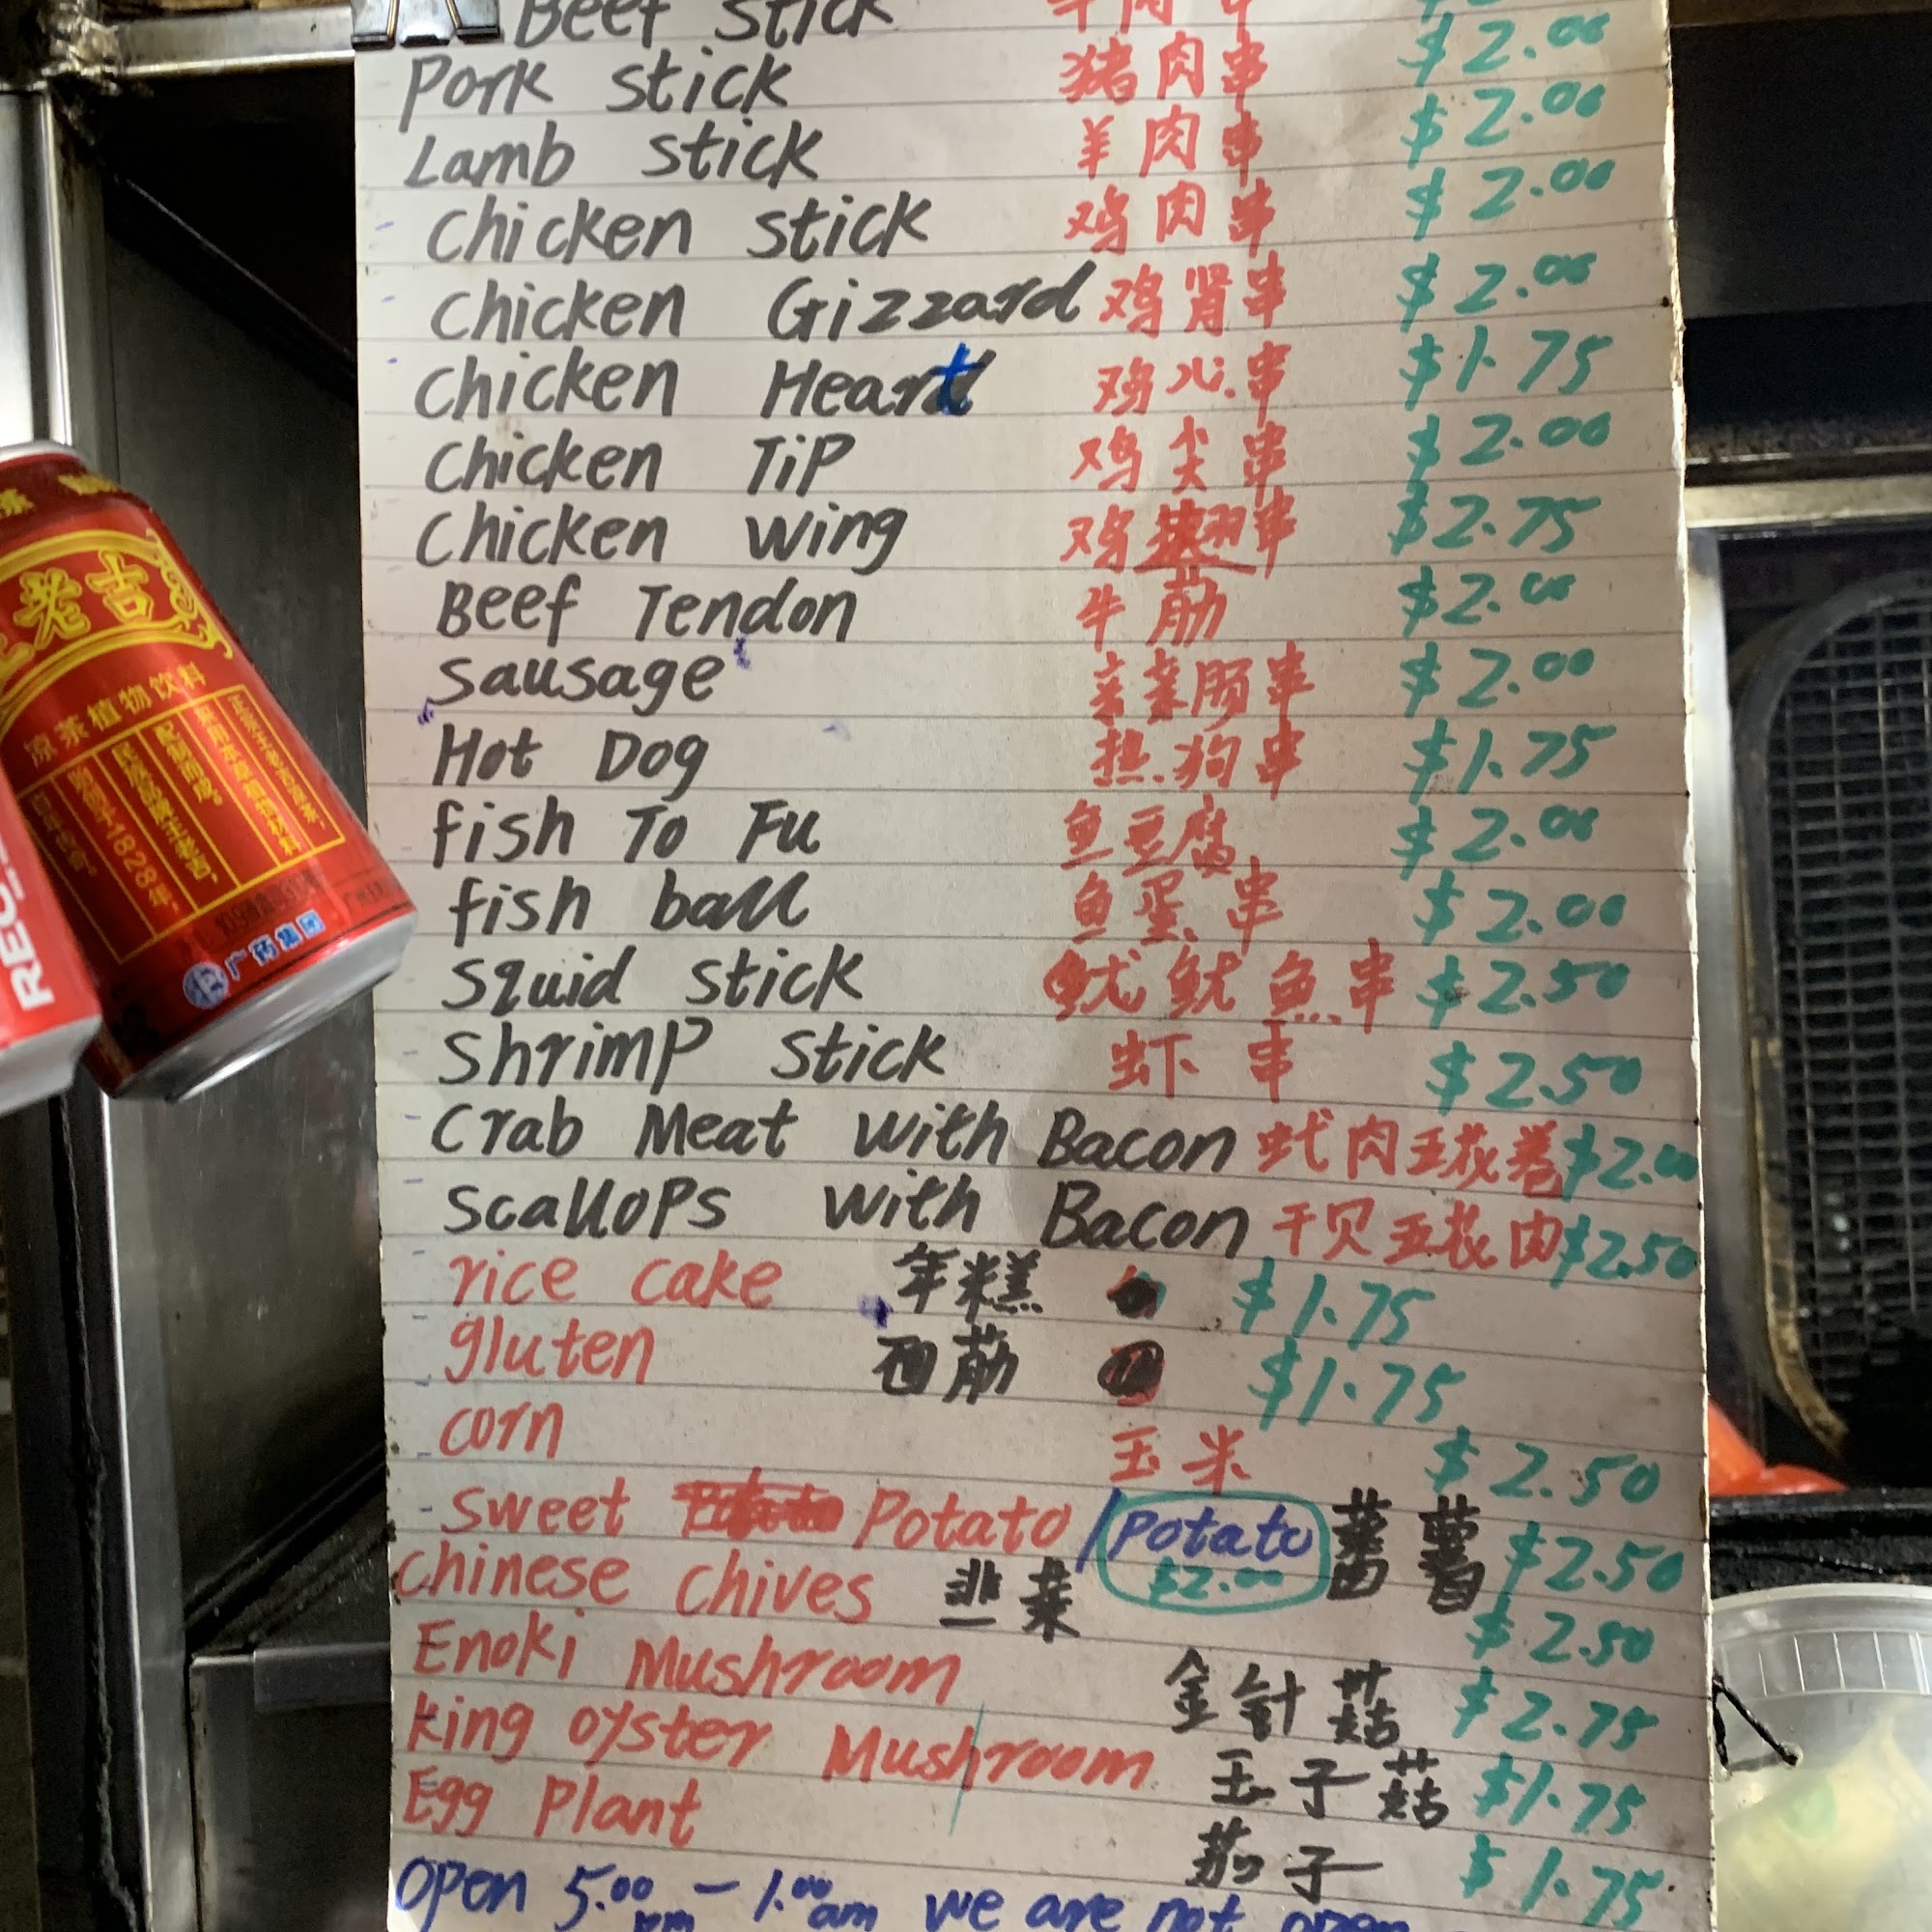 Beef stick 牛肉串
Pork stick 猪肉串 $2.00
Lamb stick 羊肉串 $2.00
Chicken stick 鸡肉串 $2.00
Chicken Gizzard 鸡肾串 $2.00
Chicken Heart 鸡心串 $1.75
Chicken TiP 鸡尖串 $2.00
Chicken wing 鸡翅串 $2.75
Beef Tendon 牛筋 $2.00
sausage 亲亲肠串 $2.00
Hot Dog 热狗串 $1.75
fish To Fu 鱼豆腐 $2.00
fish ball 鱼蛋串 $2.00
squid stick 鱿鱿魚串 $2.50
shrimp stick 虾串 $2.50
Crab Meat with Bacon 肉五花卷 $2.00
scallops with Bacon 干贝五花肉 $2.50
rice cake 年糕 $1.75
gluten 面筋 $1.75
corn 玉米 $2.50
sweet Potato / Potato $2.00 蕃薯 $2.50
Chinese chives 韭菜 $2.50
Enoki Mushroom 金针菇 $2.75
king oyster Mushroom 玉子菇 $1.75
Egg Plant 茄子 $1.75
open 5:00 pm - 1:00 am we are not open
老吉
凉茶植物饮料
1828年
广药集团